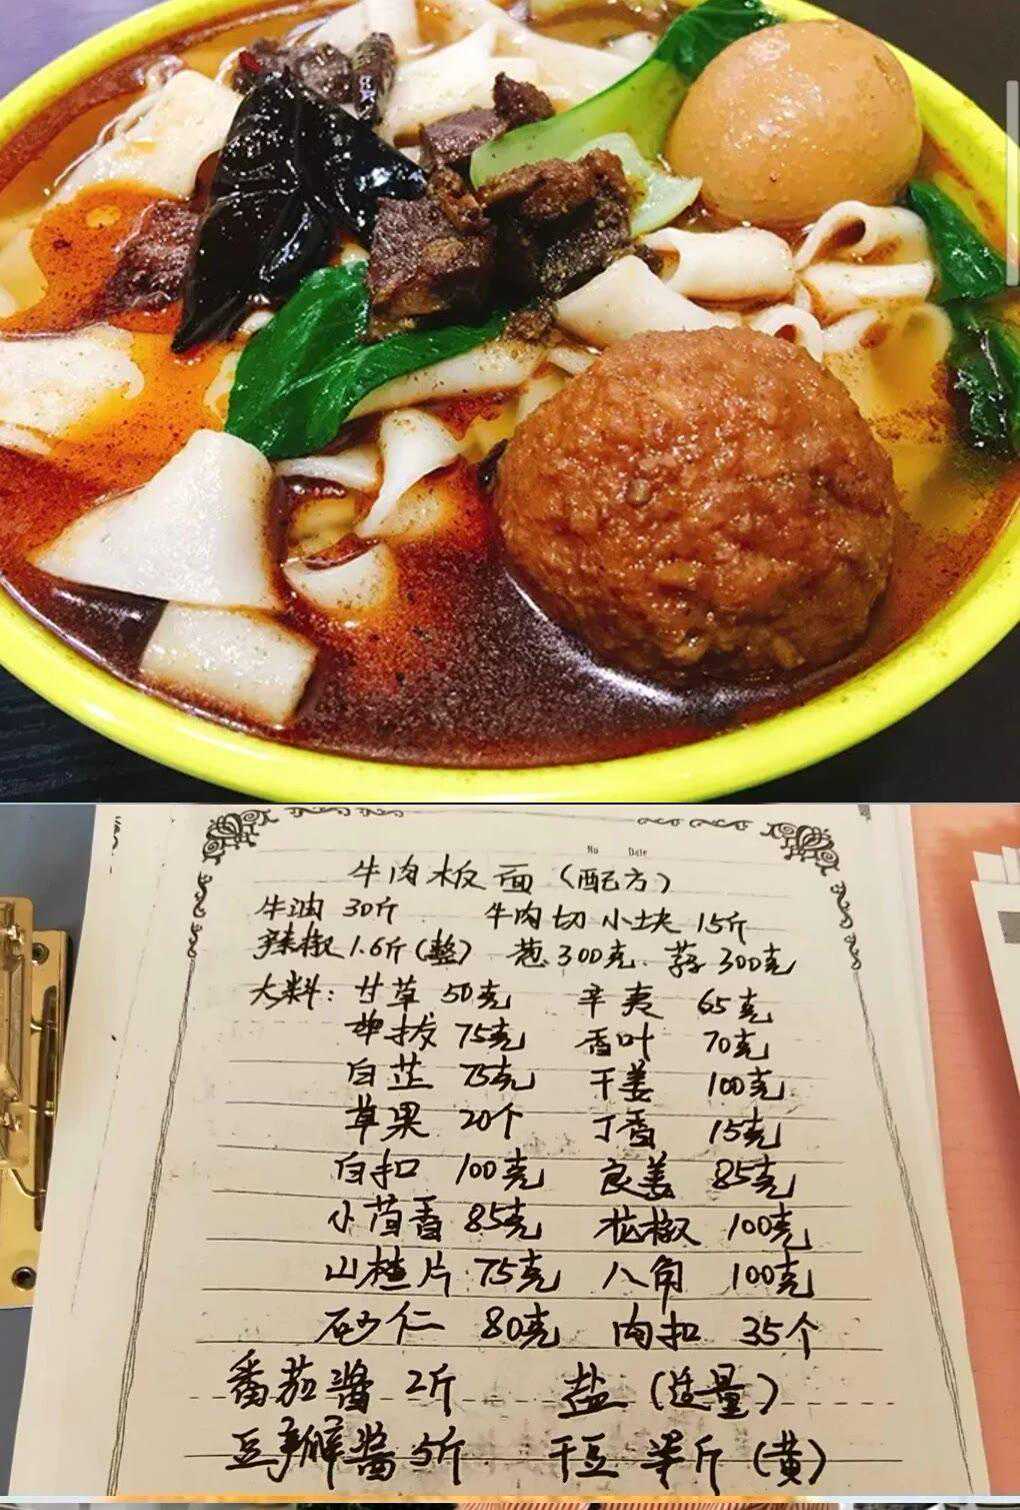 No Date
牛肉板面（配方）
牛油 30斤 牛肉切小块 15斤
辣椒 1.6斤（整） 葱 300克. 蒜 300克
大料：甘草 50克 辛夷 65克
毕拔 75克 香叶 70克
白芷 75克 干姜 100克
草果 20个 丁香 15克
白扣 100克 良姜 85克
小茴香 85克 花椒 100克
山楂片 75克 八角 100克
砂仁 80克 肉扣 35个
番茄酱 2斤 盐（适量）
豆瓣酱 5斤 干豆 斤（黄）